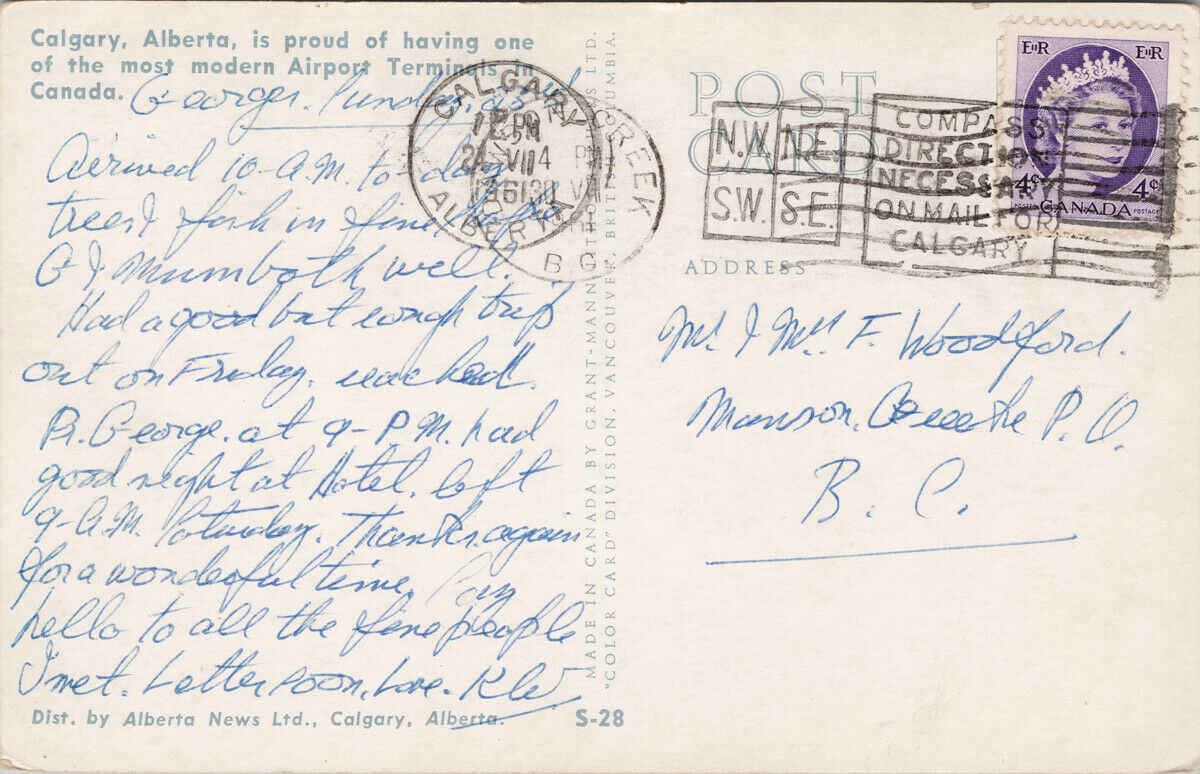 Calgary, Alberta, is proud of having one
of the most modern Airport Terminals in
Canada.
George's. Sunday,
Arrived 10-A.M. to-day
trees & fish in fine
G & Mum both well.
Had a good but rough trip
out on Friday. reached.
Pr. George. at 9-P.M. had
good night at Hotel. left
9-A.M. Saturday. Thanks again
for a wonderful time. Say
hello to all the fine people
I met. Letter soon. Love. KW
Dist. by Alberta News Ltd., Calgary, Alberta.
S-28
MADE IN CANADA BY GRANT-MANN LITHOGRAPHERS LTD.
"COLOR CARD" DIVISION, VANCOUVER, BRITISH COLUMBIA.
POST
CARD
CALGARY
PM
VII
ALBERTA
CREEK
B.C.
N.W. N.E.
S.W. S.E.
COMPASS
DIRECTION
NECESSARY
ON MAIL FOR
CALGARY
EIIR EIIR
4¢ 4¢
POSTES CANADA POSTAGE
ADDRESS
Mr. & Mrs. F. Woodford.
Manson. Creek P. O.
B. C.